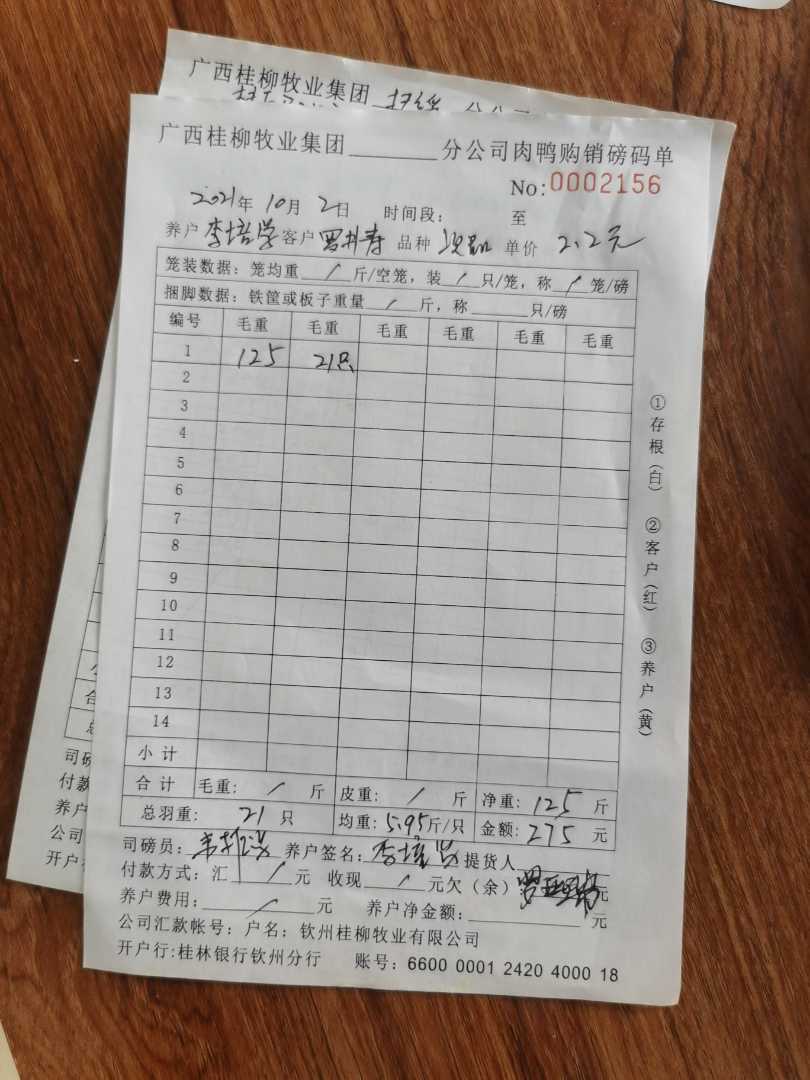 广西桂柳牧业集团
广西桂柳牧业集团______分公司肉鸭购销磅码单
No:0002156
2021年 10月 2日 时间段: 至
养户 李培学 客户 罗 寿 品种 单价 2.2元
笼装数据:笼均重 / 斤/空笼,装 / 只/笼,称 / 笼/磅
捆脚数据:铁筐或板子重量 / 斤,称______只/磅
编号 毛重 毛重 毛重 毛重 毛重 毛重
1 125 21只
2
3
4
5
6
7
8
9
10
11
12
13
14
小计
合计 毛重: / 斤 皮重: / 斤 净重: 125 斤
总羽重: 21 只 均重: 5.95斤/只 金额: 275 元
司磅员: 养户签名: 李培学 提货人
付款方式:汇 / 元 收现 / 元欠(余) 元
养户费用: / 元 养户净金额:______元
公司汇款帐号:户名:钦州桂柳牧业有限公司
开户行:桂林银行钦州分行 账号:6600 0001 2420 4000 18
①存根(白) ②客户(红) ③养户(黄)
司磅
付款
养户
公司
开户